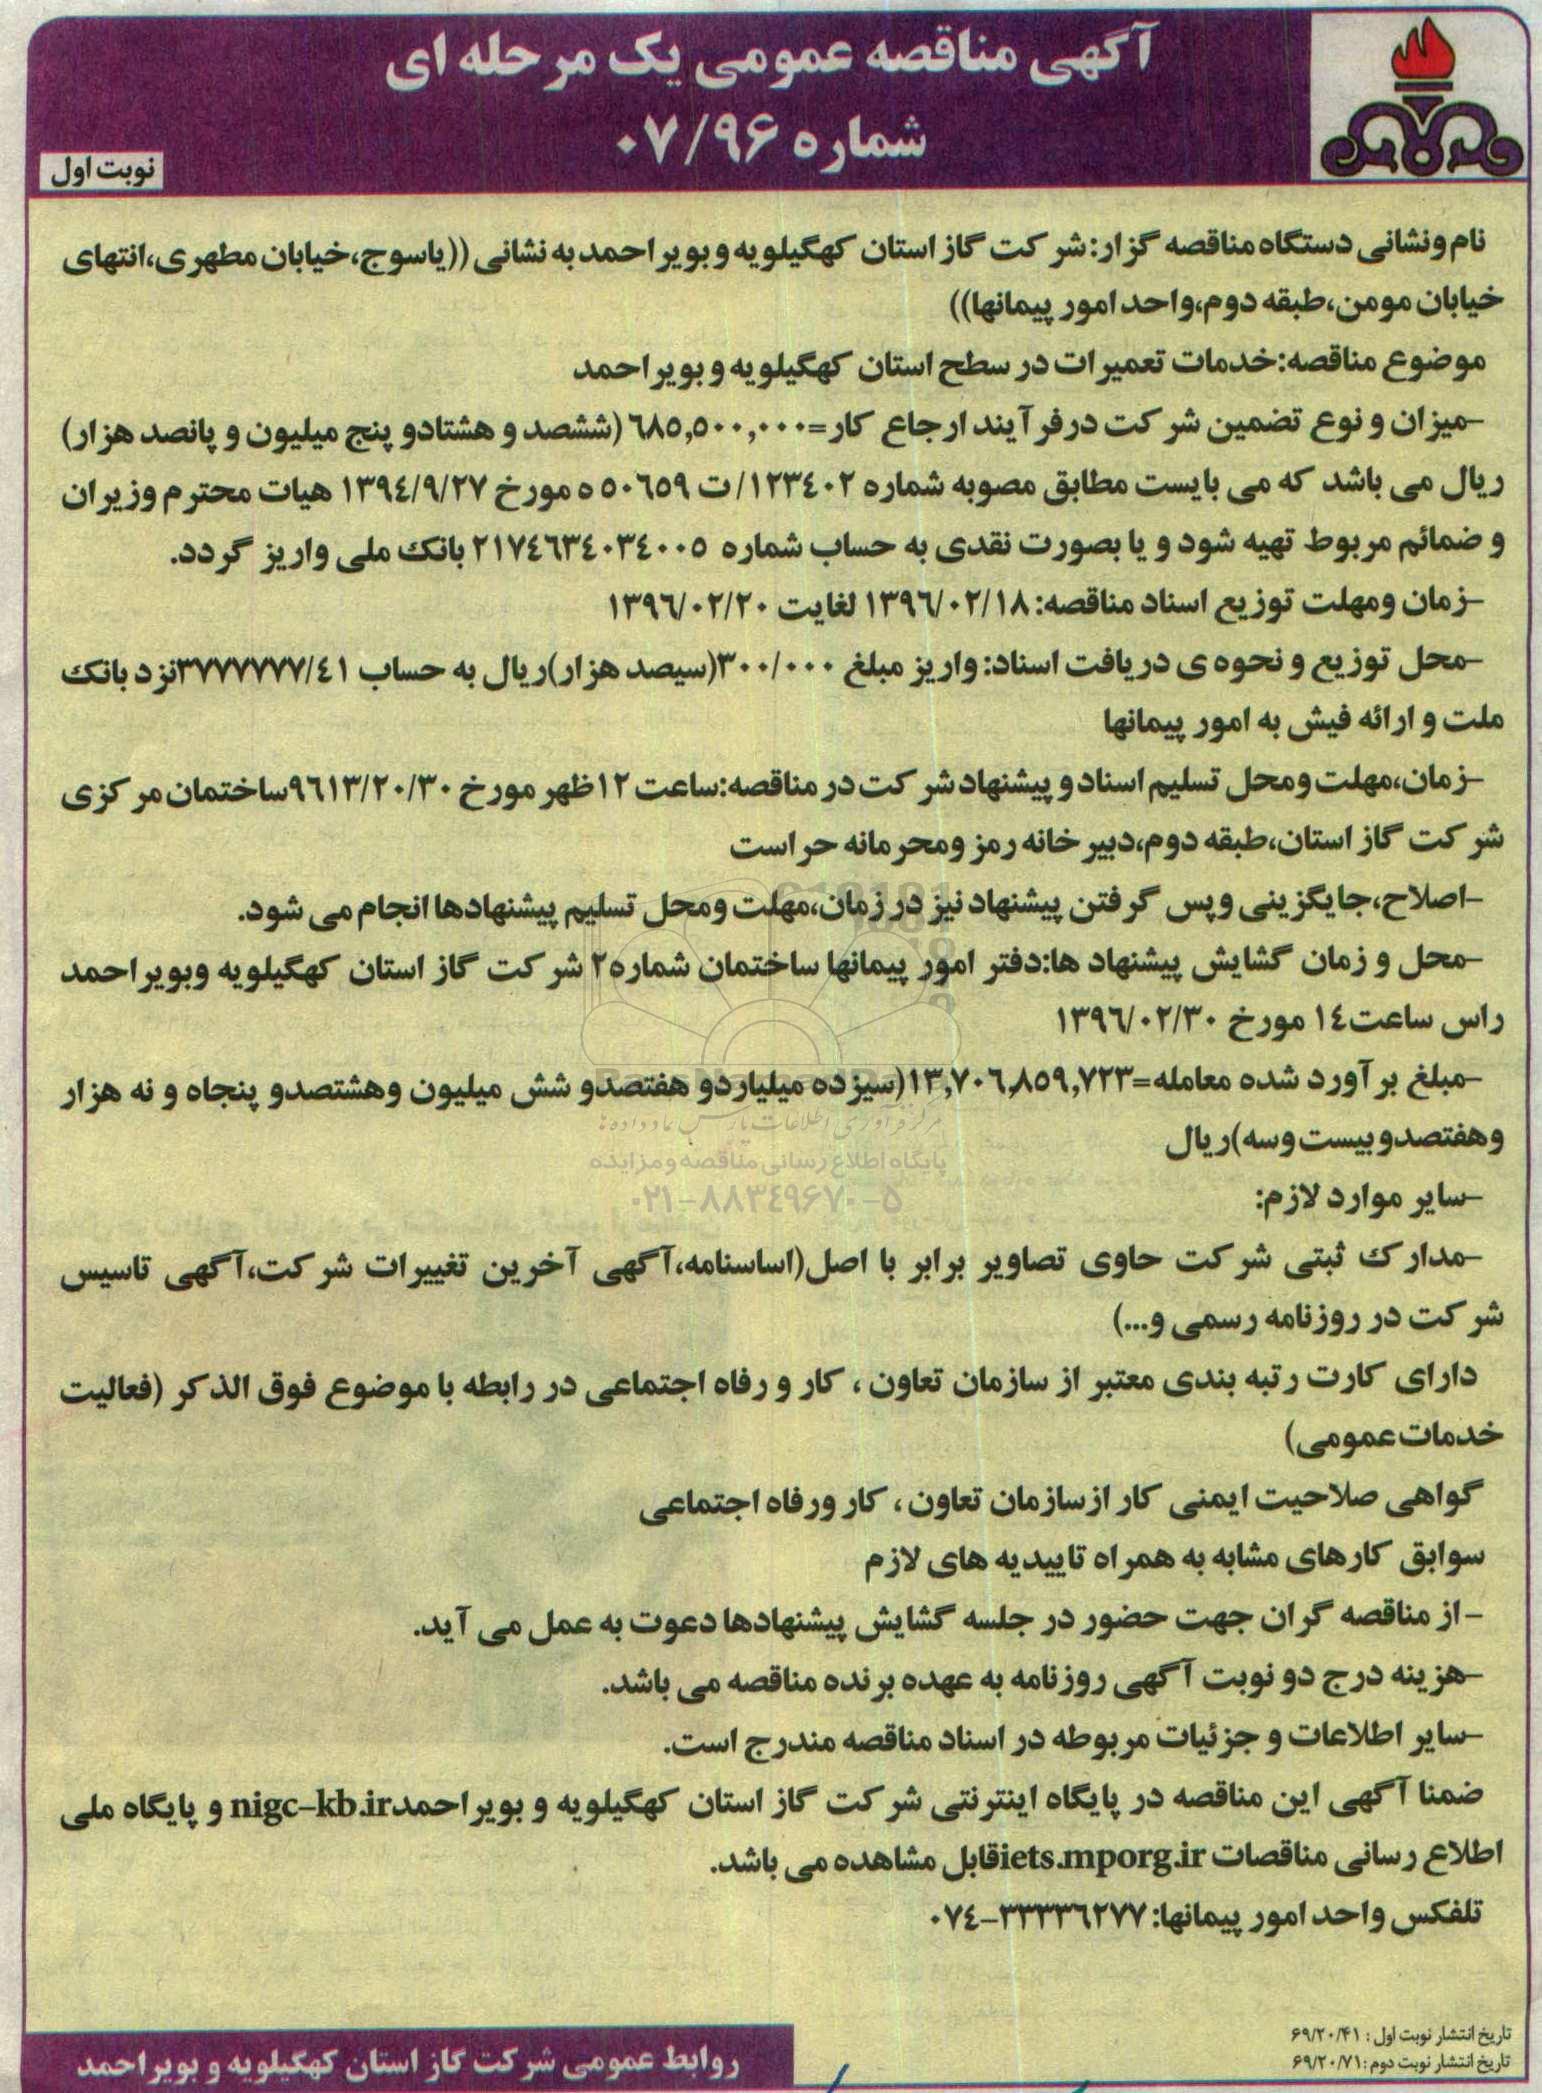 آگهی مناقصه عمومی یک مرحله ای
شماره ۰۷/۹۶
نوبت اول
نام ونشانی دستگاه مناقصه گزار:شرکت گاز استان کهگیلویه و بویراحمد به نشانی ((یاسوج،خیابان مطهری،انتهای
خیابان مومن،طبقه دوم،واحد امور پیمانها))
موضوع مناقصه:خدمات تعمیرات در سطح استان کهگیلویه و بویراحمد
-میزان و نوع تضمین شرکت درفرآیند ارجاع کار=۶۸۵,۵۰۰,۰۰۰ (ششصد و هشتادو پنج میلیون و پانصد هزار)
ریال می باشد که می بایست مطابق مصوبه شماره ۱۲۳۴۰۲/ ت ۵۰۶۵۹ ه مورخ ۱۳۹۴/۹/۲۷ هیات محترم وزیران
و ضمائم مربوط تهیه شود و یا بصورت نقدی به حساب شماره ۲۱۷۴۶۳۴۰۳۴۰۰۵ بانک ملی واریز گردد.
-زمان ومهلت توزیع اسناد مناقصه: ۱۳۹۶/۰۲/۱۸ لغایت ۱۳۹۶/۰۲/۲۰
-محل توزیع و نحوه ی دریافت اسناد: واریز مبلغ ۳۰۰/۰۰۰(سیصد هزار)ریال به حساب ۳۷۷۷۷۷۷/۴۱نزد بانک
ملت و ارائه فیش به امور پیمانها
-زمان،مهلت ومحل تسلیم اسناد و پیشنهاد شرکت در مناقصه:ساعت ۱۲ظهر مورخ ۹۶۱۳/۲۰/۳۰ساختمان مرکزی
شرکت گاز استان،طبقه دوم،دبیرخانه رمز ومحرمانه حراست
-اصلاح،جایگزینی وپس گرفتن پیشنهاد نیز در زمان،مهلت ومحل تسلیم پیشنهادها انجام می شود.
-محل و زمان گشایش پیشنهاد ها:دفتر امور پیمانها ساختمان شماره۲ شرکت گاز استان کهگیلویه وبویراحمد
راس ساعت۱۴ مورخ ۱۳۹۶/۰۲/۳۰
-مبلغ برآورد شده معامله=۱۳,۷۰۶,۸۵۹,۷۲۳(سیزده میلیاردو هفتصدو شش میلیون وهشتصدو پنجاه و نه هزار
وهفتصدوبیست وسه)ریال
مرکز فرآوری اطلاعات پارس نماد داده ها
پایگاه اطلاع رسانی مناقصه و مزایده
۰۲۱-۸۸۳۴۹۶۷۰-۵
-سایر موارد لازم:
-مدارک ثبتی شرکت حاوی تصاویر برابر با اصل(اساسنامه،آگهی آخرین تغییرات شرکت،آگهی تاسیس
شرکت در روزنامه رسمی و...)
دارای کارت رتبه بندی معتبر از سازمان تعاون ، کار و رفاه اجتماعی در رابطه با موضوع فوق الذکر (فعالیت
خدمات عمومی)
گواهی صلاحیت ایمنی کار ازسازمان تعاون ، کار ورفاه اجتماعی
سوابق کارهای مشابه به همراه تاییدیه های لازم
- از مناقصه گران جهت حضور در جلسه گشایش پیشنهادها دعوت به عمل می آید.
-هزینه درج دو نوبت آگهی روزنامه به عهده برنده مناقصه می باشد.
-سایر اطلاعات و جزئیات مربوطه در اسناد مناقصه مندرج است.
ضمنا آگهی این مناقصه در پایگاه اینترنتی شرکت گاز استان کهگیلویه و بویراحمدnigc-kb.ir و پایگاه ملی
اطلاع رسانی مناقصات iets.mporg.irقابل مشاهده می باشد.
تلفکس واحد امور پیمانها: ۳۳۳۳۶۲۷۷-۰۷۴
تاریخ انتشار نوبت اول : ۶۹/۲۰/۴۱
تاریخ انتشار نوبت دوم :۶۹/۲۰/۷۱
روابط عمومی شرکت گاز استان کهگیلویه و بویراحمد